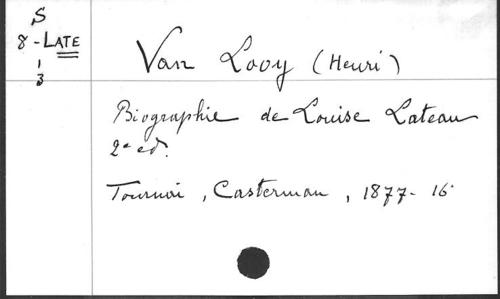 S
8 - LATE
1
3
Van Looy (Henri)
Biographie de Louise Lateau
2e ed.
Tournai, Casterman, 1877 - 16°